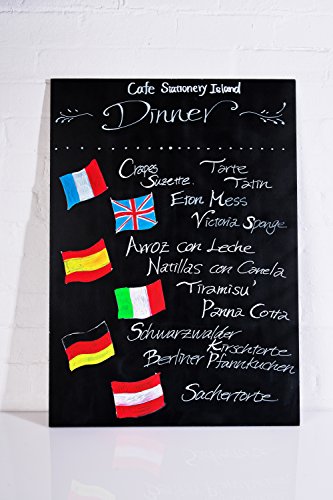 Cafe Stationery Island
Dinner
Crapes Tarte
Suzette, Tatin
Eton Mess
Victoria Sponge
Arroz con Leche
Natillas con Canela
Tiramisu'
Panna Cotta
Schwarzwalder
Kirschtorte
Berliner Pfannkuchen
Sachertorte